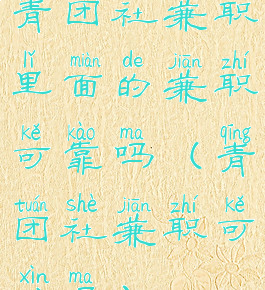 青团社兼职
lǐ miàn de jiān zhí
里面的兼职
kě kào ma qīng
可靠吗(青
tuán shè jiān zhí kě
团社兼职可
xìn ma